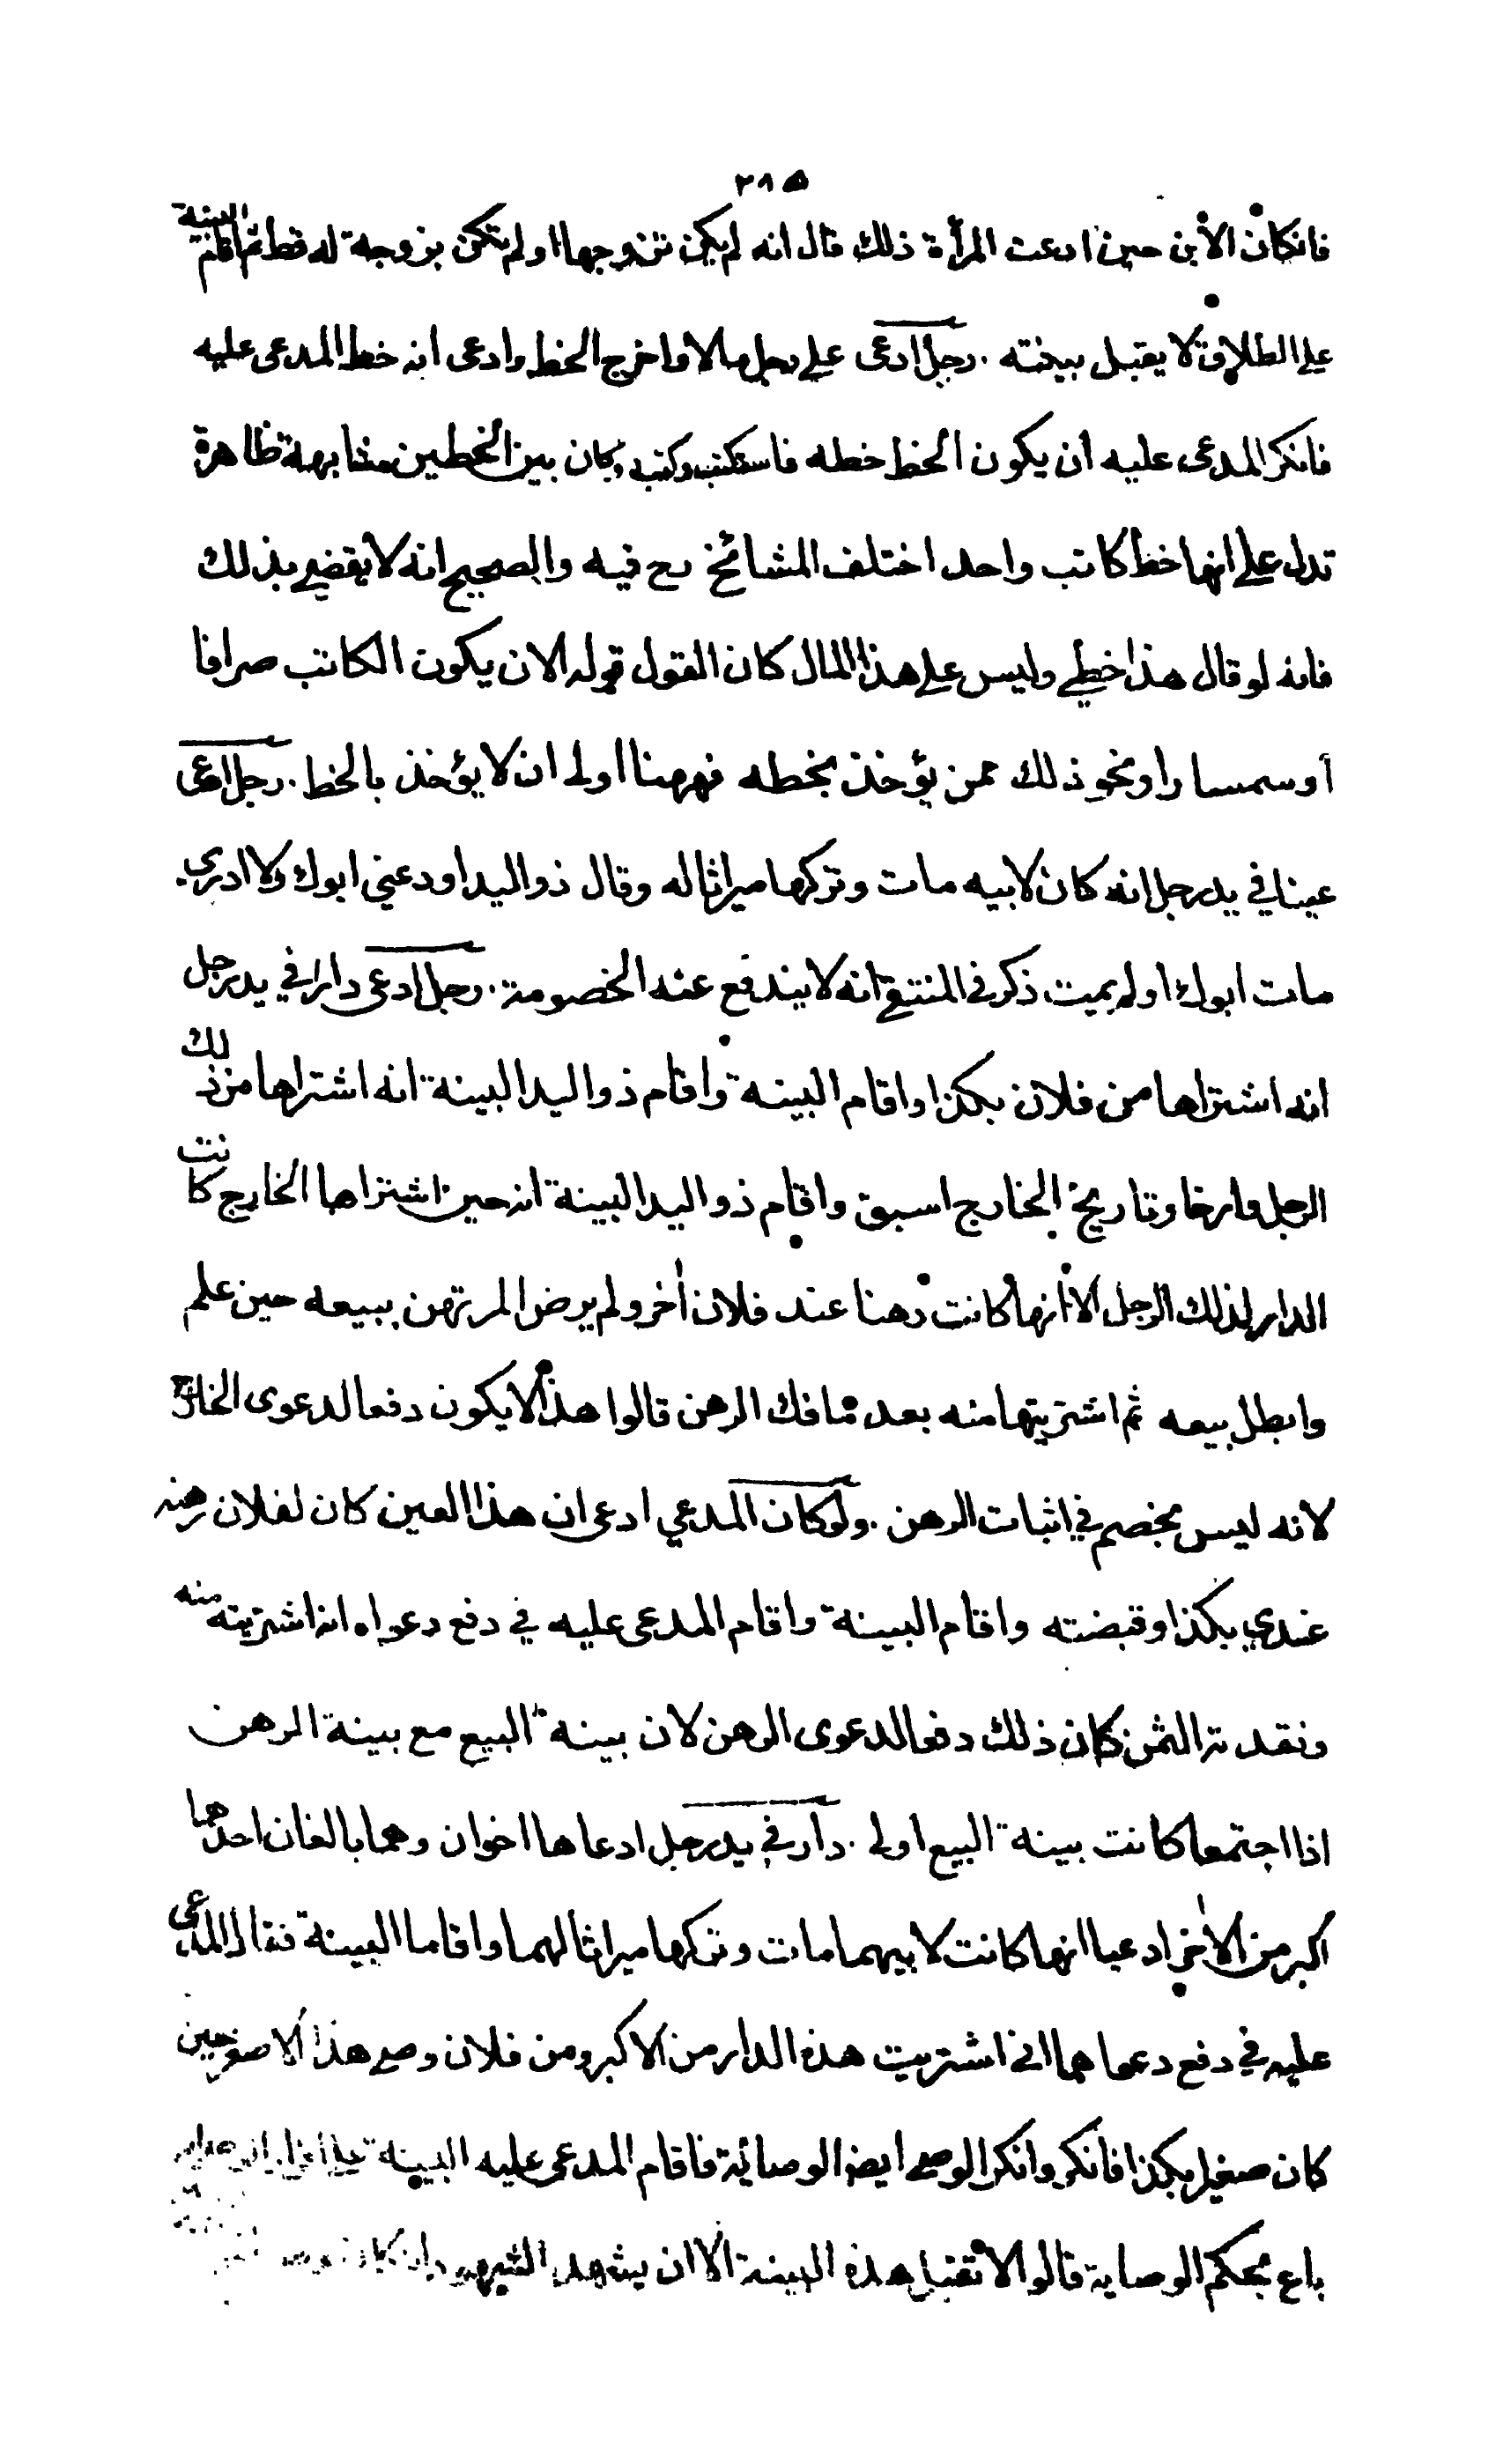 ٢٨٥
فانكان الابن حين ادعت المرأة ذلك قال انه لم يكن تزوجها او لم يتكن بزوجة له قط ثم اقام البينة
على الطلاق لا يقبل بينته . رجل ادعى على رجل مالا واخرج الخط وادعى انه خط المدعى عليه
فانكر المدعى عليه ان يكون الخط خطه فاستكتب وكتب وكان بين الخطين مشابهة ظاهرة
تدل على انها خط كاتب واحد اختلف المشائخ رح فيه والصحيح انه لا يقضي بذلك
فانه لو قال هذا خطي وليس علي هذا المال كان القول قوله الا ان يكون الكاتب صرافا
او سمسارا ونحو ذلك ممن يؤخذ بخطه فههنا اولى ان لا يؤخذ بالخط . رجل ادعى
عينا في يد رجل انه كان لابيه مات وتركها ميراثا له وقال ذو اليد اودعني ابوك ولا ادري
مات ابوك او لم يميت ذكر في المنتقى انه لا يندفع عنه الخصومة . رجل ادعى دارا في يد رجل
انه اشتراها من فلان بكذا واقام البينة واقام ذو اليد البينة انه اشتراها من ذلك
الرجل وارخا وتاريخ الخارج اسبق واقام ذو اليد البينة انه حين اشتراها الخارج كانت
الدار لذلك الرجل الا انها كانت رهنا عند فلان آخر ولم يرض المرتهن ببيعه حين علم
وابطل بيعه ثم اشتريتها منه بعد ما فك الرهن قالوا هذا لا يكون دفعا لدعوى الخارج
لانه ليس بخصم في اثبات الرهن . ولو كان المدعي ادعى ان هذا العين كان لفلان رهنه
عندي بكذا وقبضته واقام البينة واقام المدعى عليه في دفع دعواه انه اشتريته منه
ونقدته الثمن كان ذلك دفعا لدعوى الرهن لان بينة البيع مع بينة الرهن
اذا اجتمعا كانت بينة البيع اولى . دار في يد رجل ادعاها اخوان وهما بالغان احدهما
اكبر من الآخر ادعيا انها كانت لابيهما مات وتركها ميراثا لهما واقاما البينة فقال المدعى
عليه في دفع دعواهما اني اشتريت هذه الدار من الاكبر ومن فلان وصي هذا الاصغر حين
كان صغيرا بكذا فانكر وانكر الوصي ايضا الوصائية فاقام المدعى عليه البينة على
باع بحكم الوصاية قالوا لا تقبل هذه البينة الا ان يشهد الشهود